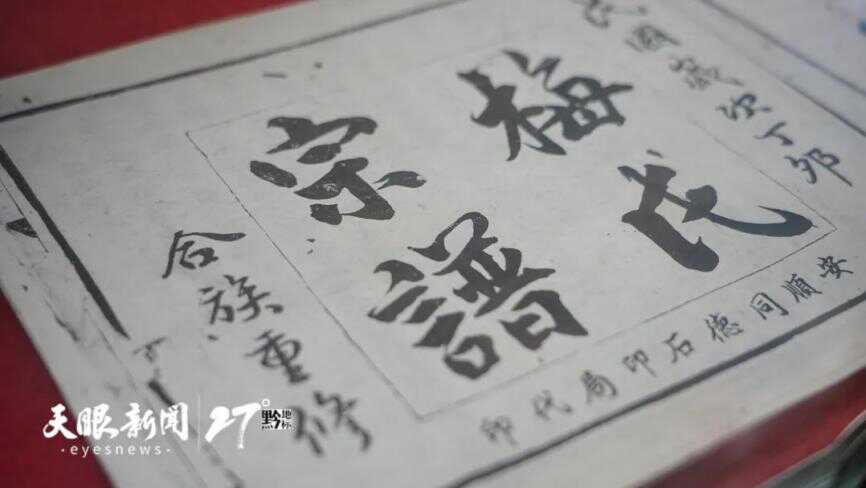 民國歲次丁卯
梅氏
宗譜
合族重修
安順同德石印局代印
天眼新闻
eyesnews
27°黔地标